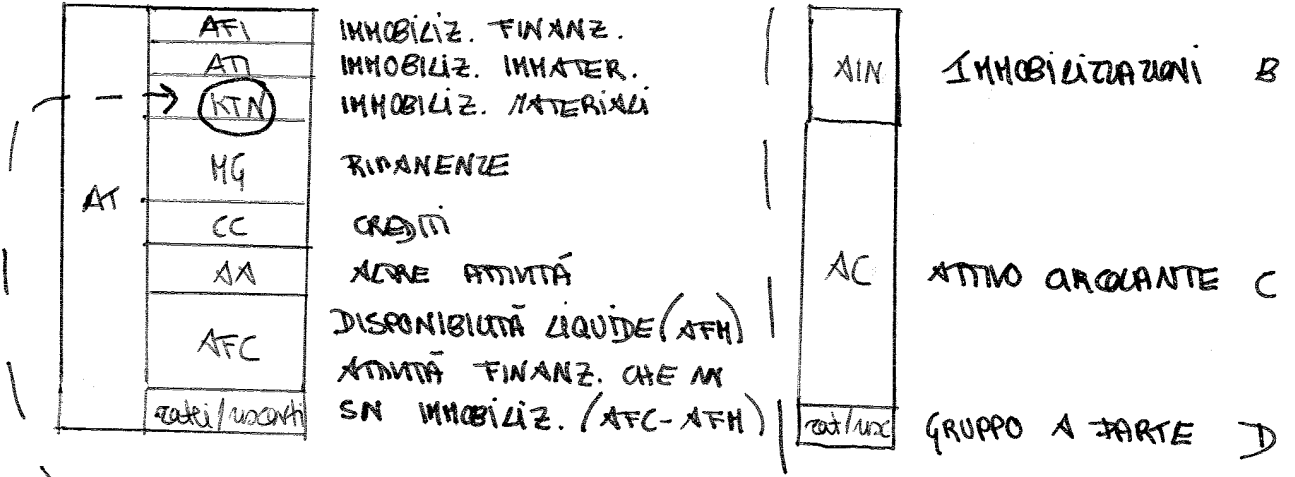 AFI IMMOBILIZ. FINANZ.
ATI IMMOBILIZ. IMMATER.
KTN IMMOBILIZ. MATERIALI
MG RIMANENZE
AT
CC CREDITI
AA ALTRE ATTIVITÁ
DISPONIBILITÁ LIQUIDE (AFM)
AFC
ATTIVITÁ FINANZ. CHE NN
ratei/risconti SN IMMOBILIZ. (AFC-AFM)
AIN IMMOBILIZZAZIONI B
AC ATTIVO CIRCOLANTE C
rat/risc GRUPPO A PARTE D